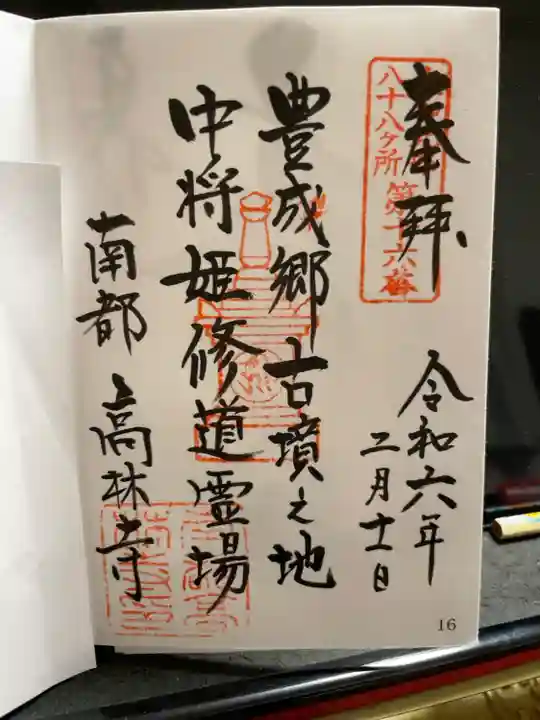 奉拝
八十八ヶ所 第十六番
令和六年
二月十一日
豊成郷古墳之地
中将姫修道霊場
南都 高林寺
16